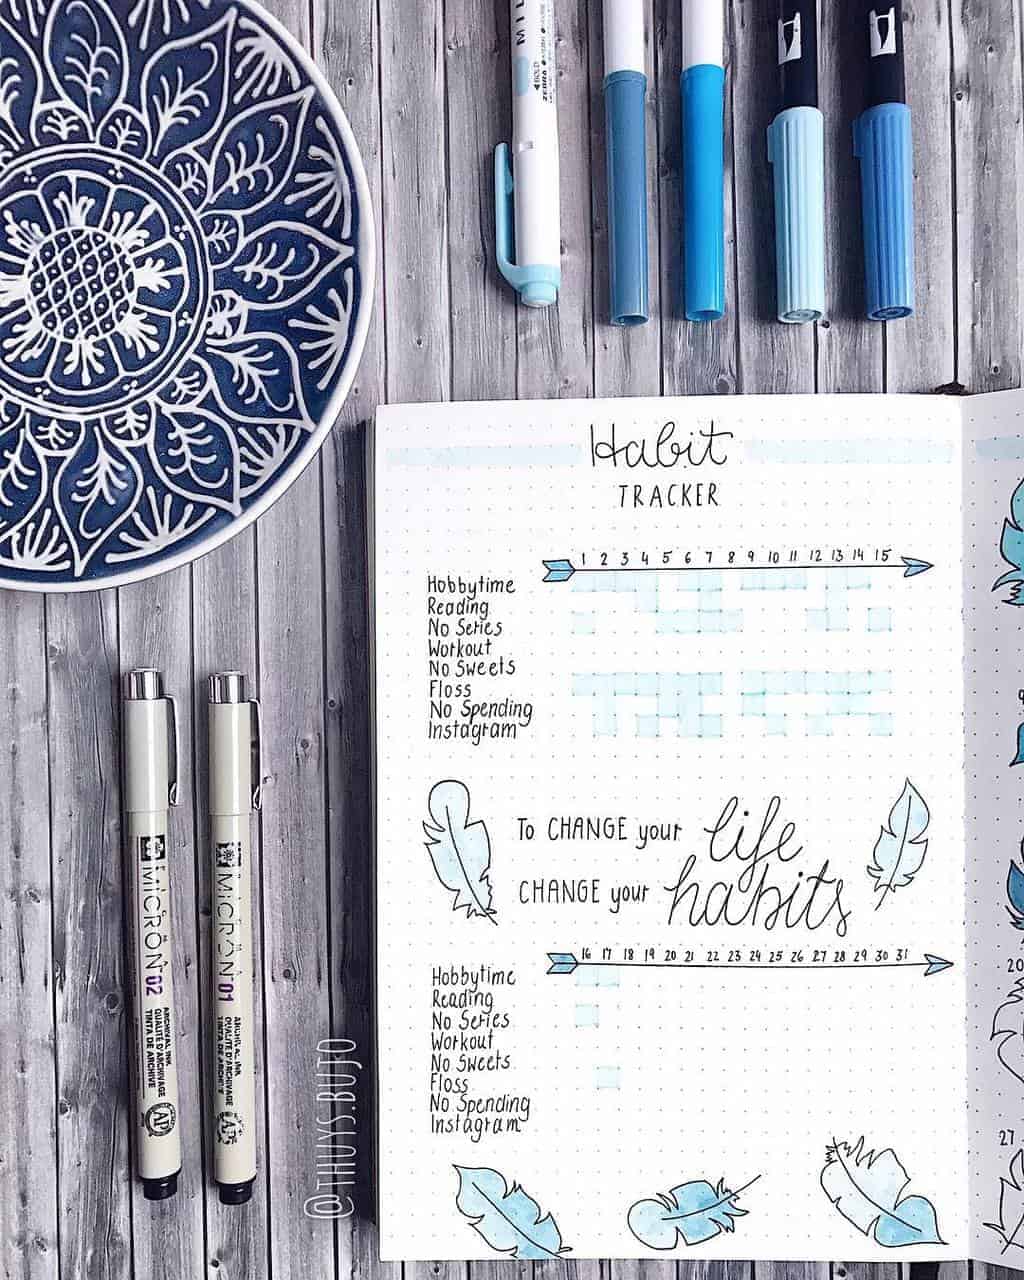 MIL
BOLD
ZEBRA
Habit
TRACKER
1 2 3 4 5 6 7 8 9 10 11 12 13 14 15
Hobbytime
Reading
No Series
Workout
No Sweets
Floss
No Spending
Instagram
To CHANGE your life
CHANGE your habits
16 17 18 19 20 21 22 23 24 25 26 27 28 29 30 31
Hobbytime
Reading
No Series
Workout
No Sweets
Floss
No Spending
Instagram
20
27
MICRON 02
ARCHIVAL INK
QUALITÉ D'ARCHIVAGE
TINTA DE ARCHIVE
AP
MICRON 01
ARCHIVAL INK
QUALITÉ D'ARCHIVAGE
TINTA DE ARCHIVE
AP
@THUYS.BUJO